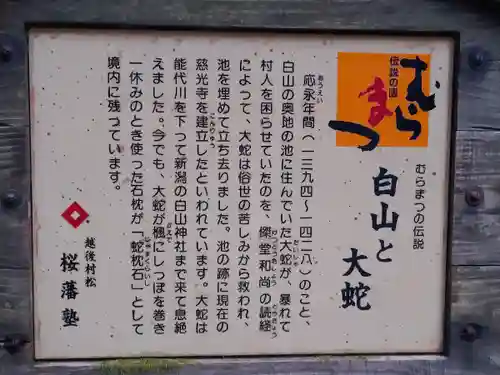 むらまつ
伝説の道
むらまつの伝説
白山と
大蛇
応永年間(一三九四~一四二八)のこと、
白山の奥地の池に住んでいた大蛇が、暴れて
村人を困らせていたのを、傑堂和尚の読経
によって、大蛇は俗世の苦しみから救われ、
池を埋めて立ち去りました。池の跡に現在の
慈光寺を建立したといわれています。大蛇は
能代川を下って新潟の白山神社まで来て息絶
えました。今でも、大蛇が楓にしっぽを巻き
一休みのとき使った石枕が「蛇枕石」として
境内に残っています。
越後村松
桜藩塾